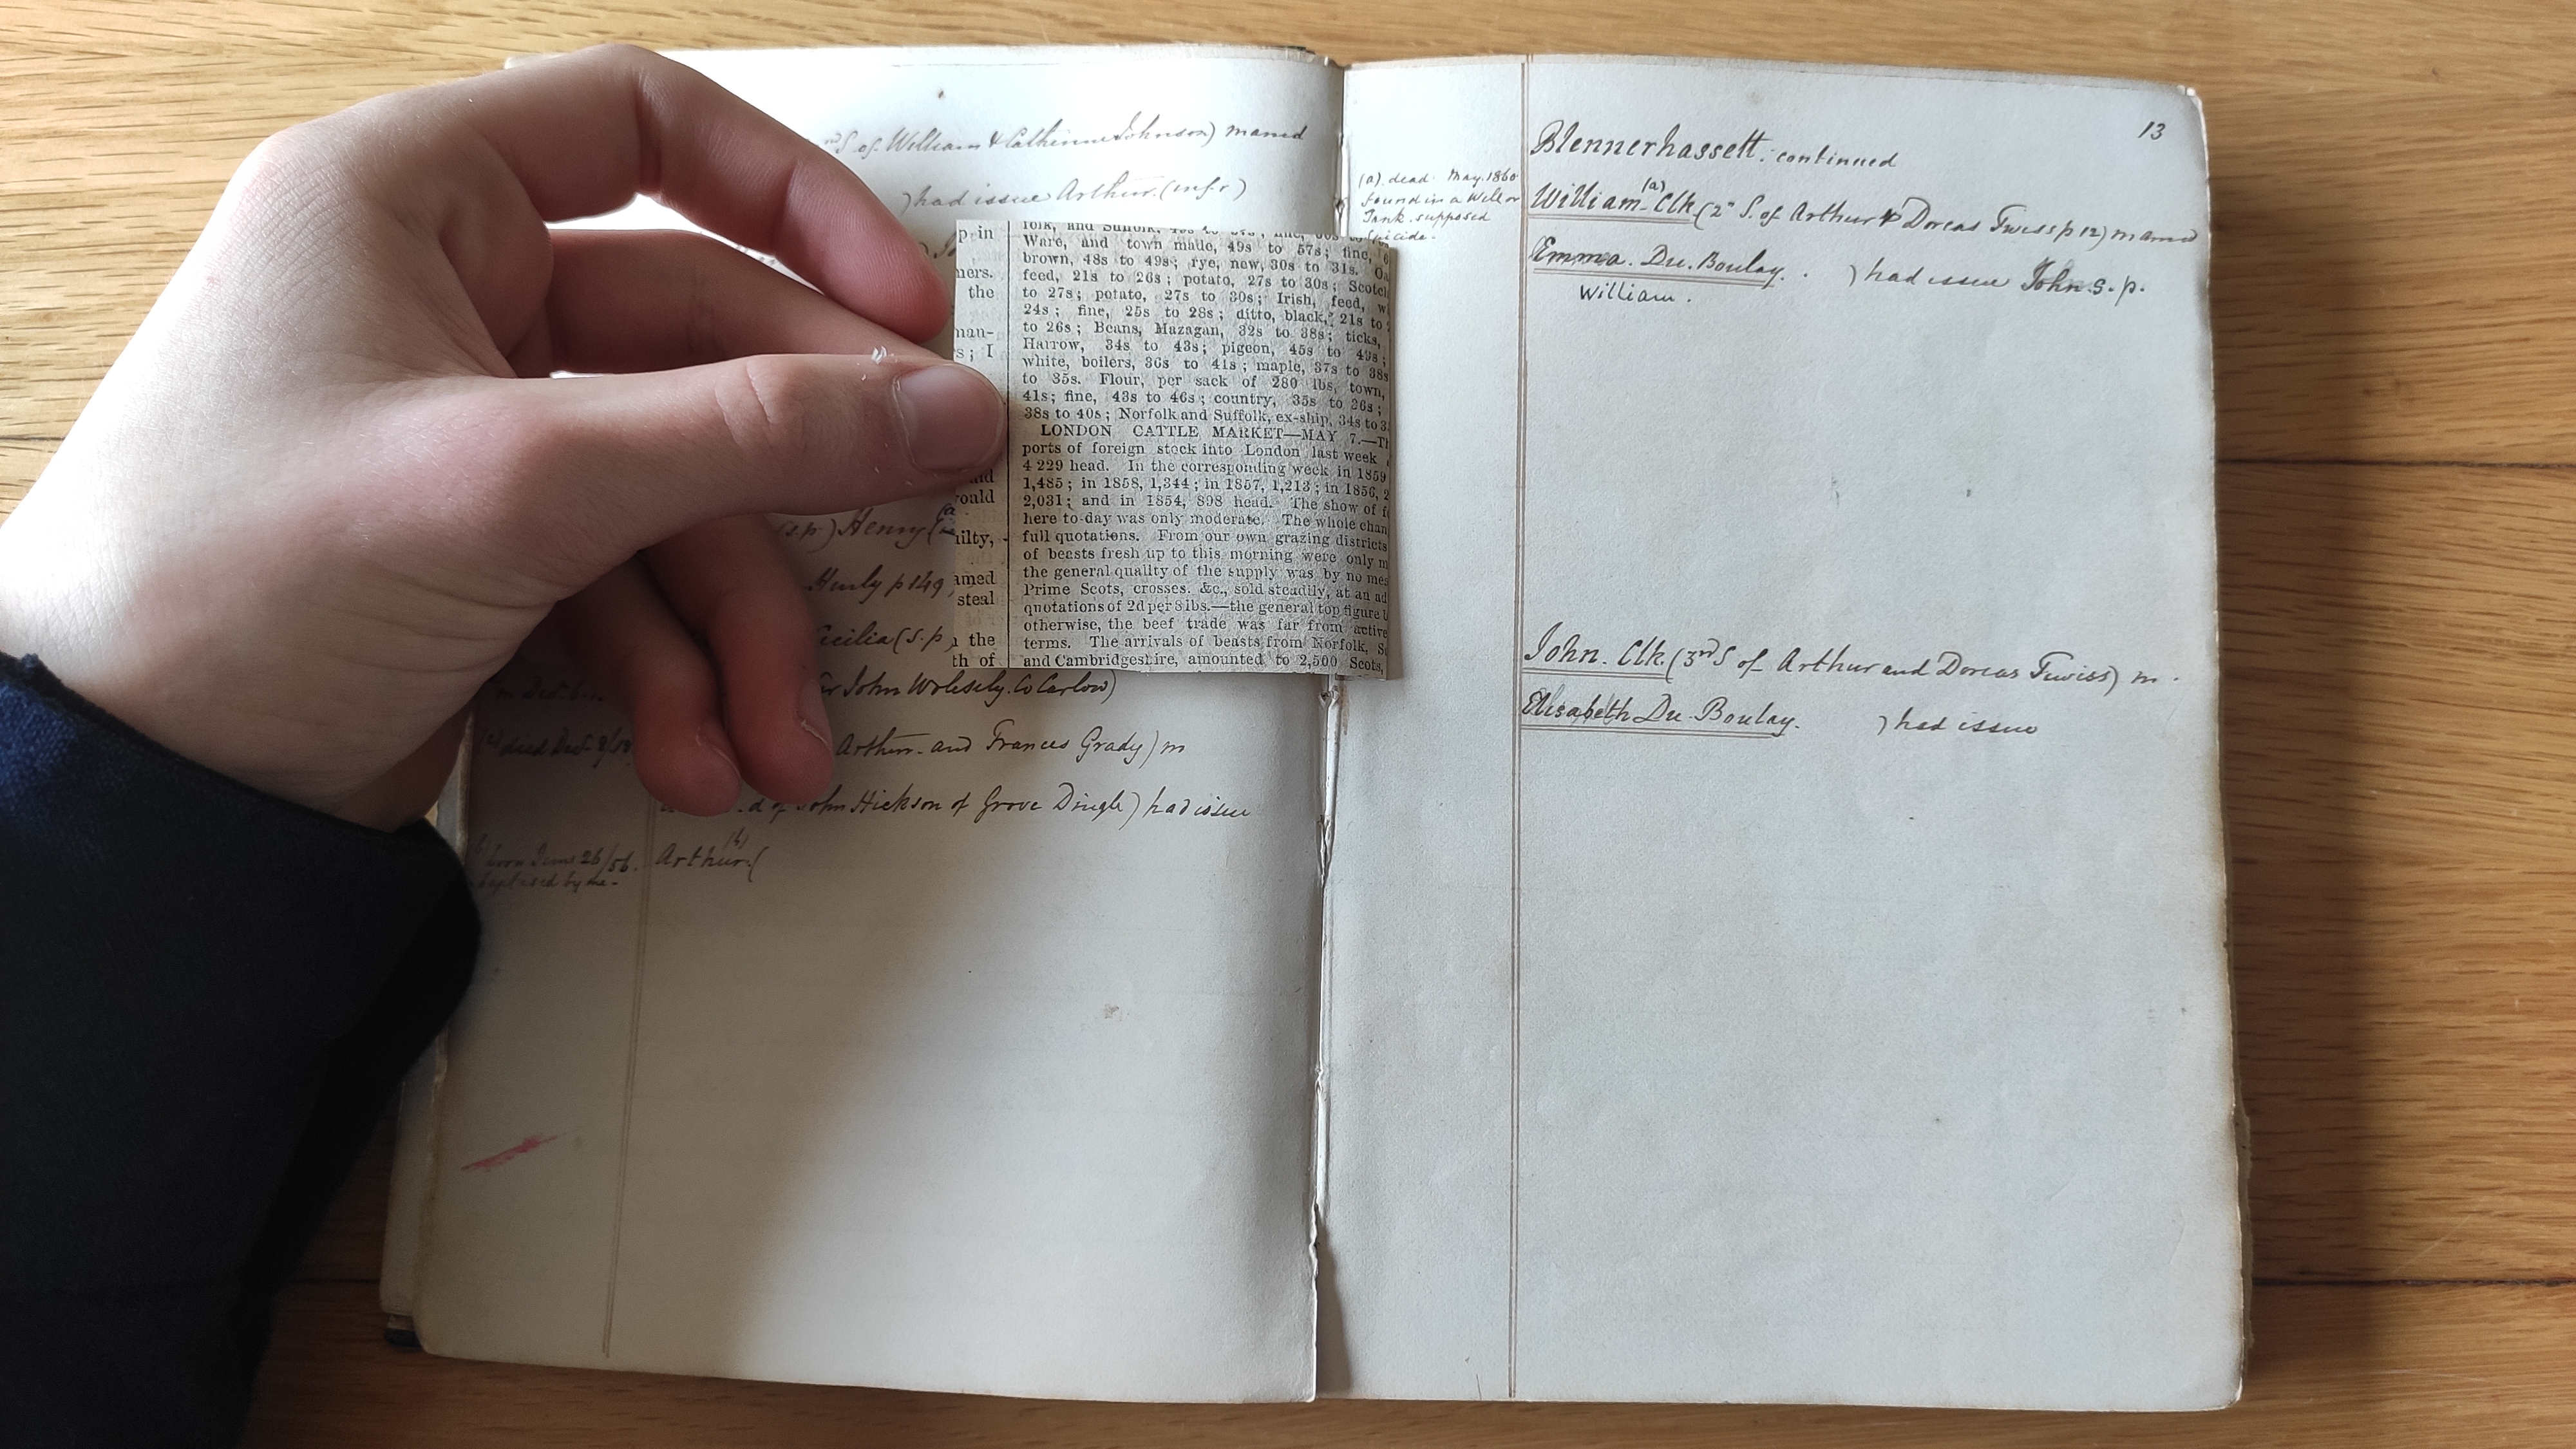 S. of William & Catherine Johnson) married
) had issue Arthur. (infr)
(s.p) Henry
Henly p 149
Cecilia (s.p
John Wolesely. Co Carlow)
died Dec. 8/58
Arthur. and Frances Grady) m
d of John Hickson of Grove Dingle) had issue
(b)
born June 26/56. Arthur (
baptised by me-
p in
ners.
the
nan-
s; I
nd
ould
uilty,
amed
steal
n the
th of
folk, and Suffolk,
Ware, and town made, 49s to 57s; fine,
brown, 48s to 49s; rye, new, 30s to 31s. O
feed, 21s to 26s; potato, 27s to 30s; Scotch
to 27s; potato, 27s to 30s; Irish, feed, w
24s; fine, 25s to 28s; ditto, black, 21s to
to 26s; Beans, Mazagan, 32s to 38s; ticks,
Harrow, 34s to 43s; pigeon, 45s to 49s;
white, boilers, 36s to 41s; maple, 37s to 38s
to 35s. Flour, per sack of 280 lbs, town,
41s; fine, 43s to 46s; country, 35s to 36s;
38s to 40s; Norfolk and Suffolk, ex-ship, 34s to 3
LONDON CATTLE MARKET—MAY 7.—Th
ports of foreign stock into London last week
4 229 head. In the corresponding week in 1859
1,485; in 1858, 1,344; in 1857, 1,213; in 1856, 2
2,031; and in 1854, 898 head. The show of f
here to-day was only moderate. The whole chan
full quotations. From our own grazing districts
of beasts fresh up to this morning were only m
the general quality of the supply was by no mea
Prime Scots, crosses. &c., sold steadily, at an ad
quotations of 2d per 8 lbs.—the general top figure b
otherwise, the beef trade was far from active
terms. The arrivals of beasts from Norfolk, S
and Cambridgeshire, amounted to 2,500 Scots,
13
Blennerhassett. continued
(a) dead May. 1860
found in a Well or
Tank. supposed
Suicide.
William (a) Clk (2" S. of Arthur & Dorcas Twiss p 12) married
Emma. Du. Boulay. ) had issue John. s. p.
William.
John. Clk. (3rd S of Arthur and Dorcas Twiss) m.
Elisabeth Du. Boulay. ) had issue